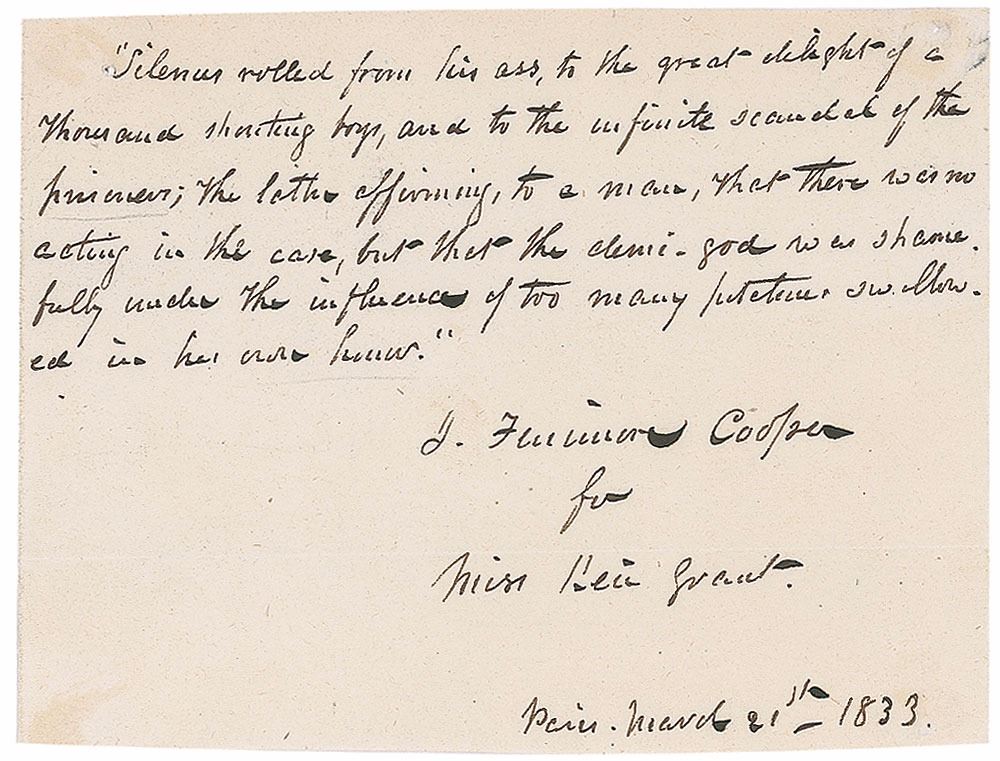 "Silenus rolled from his ass, to the great delight of a
thousand shouting boys, and to the infinite scandal of the
prisoners; the latter affirming, to a man, that there was no
acting in the case, but that the demi-god was shame-
fully under the influence of too many potations swallow-
ed in his own honor."
J. Fenimore Cooper
for
Miss Grant.
Paris. March 21st 1833.